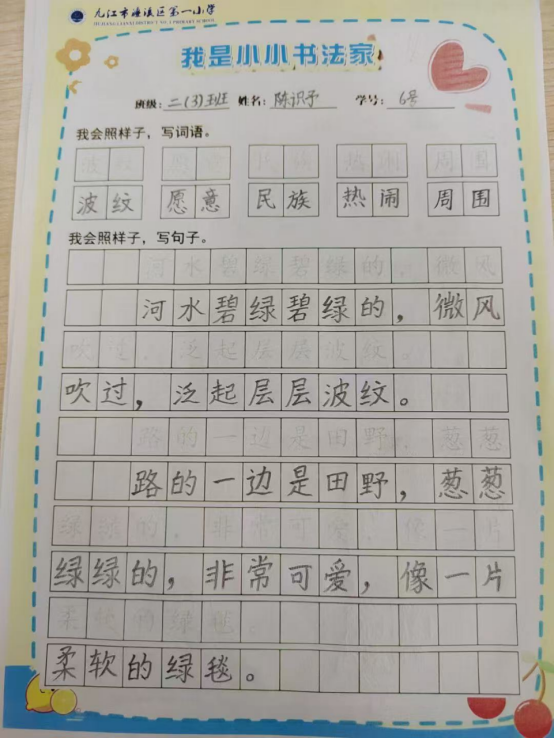 九江市濂溪区第一小学
JIUJIANG LIANXI DISTRICT NO.1 PRIMARY SCHOOL
我是小小书法家
班级：二(3)班 姓名：陈识予 学号：6号
我会照样子，写词语。
波纹 愿意 民族 热闹 周围
波纹 愿意 民族 热闹 周围
我会照样子，写句子。
河水碧绿碧绿的，微风
河水碧绿碧绿的，微风
吹过，泛起层层波纹。
吹过，泛起层层波纹。
路的一边是田野，葱葱
路的一边是田野，葱葱
绿绿的，非常可爱，像一片
绿绿的，非常可爱，像一片
柔软的绿毯。
柔软的绿毯。